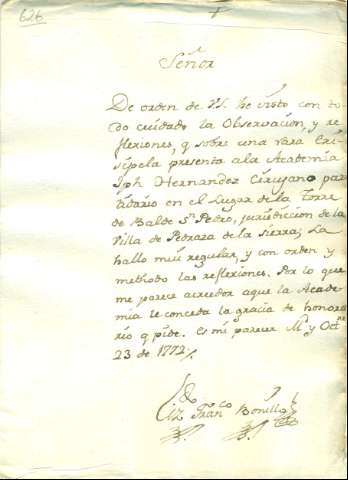 626
Señor
De orden de V.S. he visto con to-
do cuidado la Observacion, y re-
flexiones, q sobre una rara Eri-
sipela presenta ala Academia
Jph Hernandez Cirujano par-
tidario en el Lugar de la Torre
de Balde Sn Pedro, jurisdicion de la
Villa de Pedraza de la sierra; La
hallo mui regular, y con orden, y
methodo las reflexiones. Por lo que
me parece acreedor aque la Acade-
mia le conceda la gracia de honora-
rio q pide. Es mi parecer M y Octre
23 de 1772
Franco Bonillo